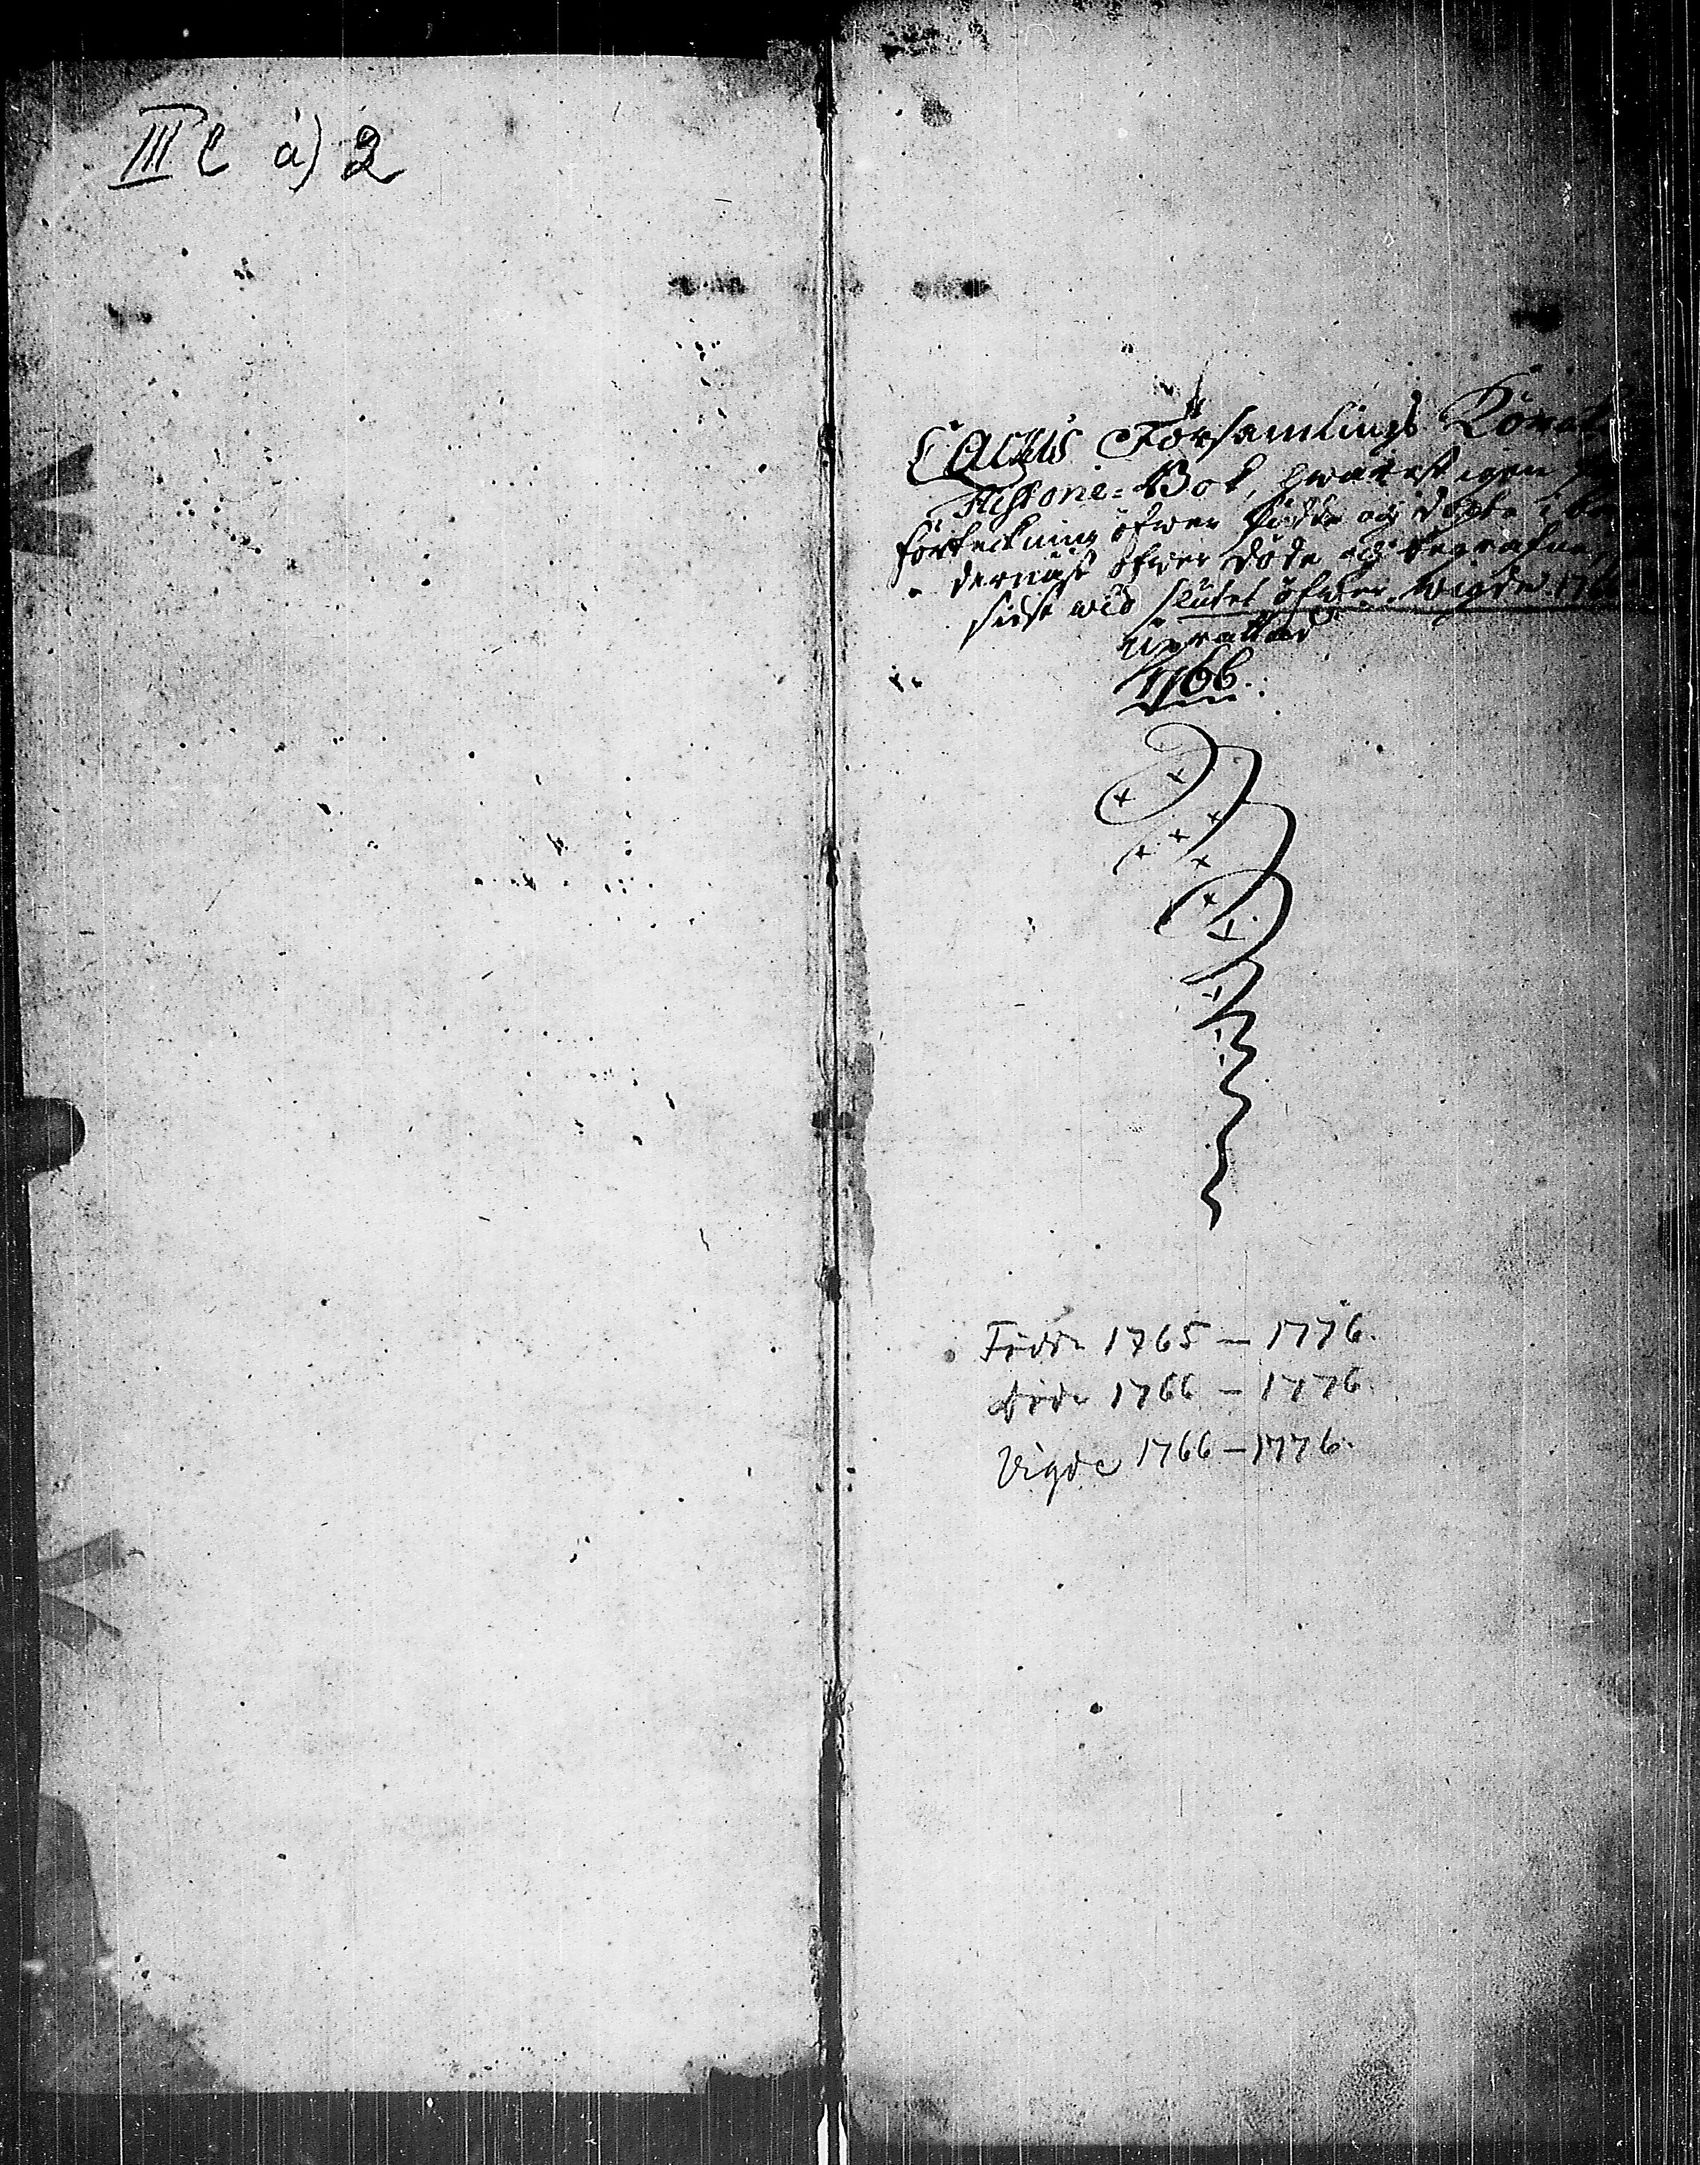 III C a) 2
Församlings
Bok, hwarst igen
förteckning öfwer födde och döpte i
dernäst öfwer döde och begrafne,
sidst wid slutet öfwer wigde
uprättad
1766.
Födde 1765 — 1776.
döde 1766 — 1776.
Vigde 1766 — 1776.